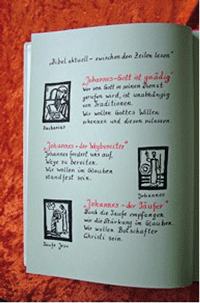 „Bibel aktuell – zwischen den Zeilen lesen"
„Johannes – Gott ist gnädig"
Wer von Gott in seinen Dienst
gerufen wird, ist unabhängig
von Traditionen.
Wir wollen Gottes Willen
erkennen und diesen zulassen.
Zacharias
„Johannes – der Wegbereiter"
Johannes fordert uns auf,
Wege zu bereiten.
Wir wollen im Glauben
standfest sein.
Johannes
„Johannes – der Täufer"
Durch die Taufe empfangen
wir die Stärkung im Glauben.
Wir wollen Botschafter
Christi sein.
Taufe Jesu